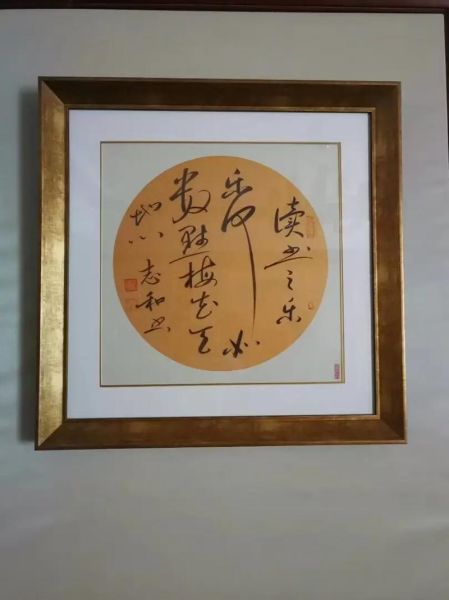 读书之乐
乐何如
数点梅花天
地心 志和书